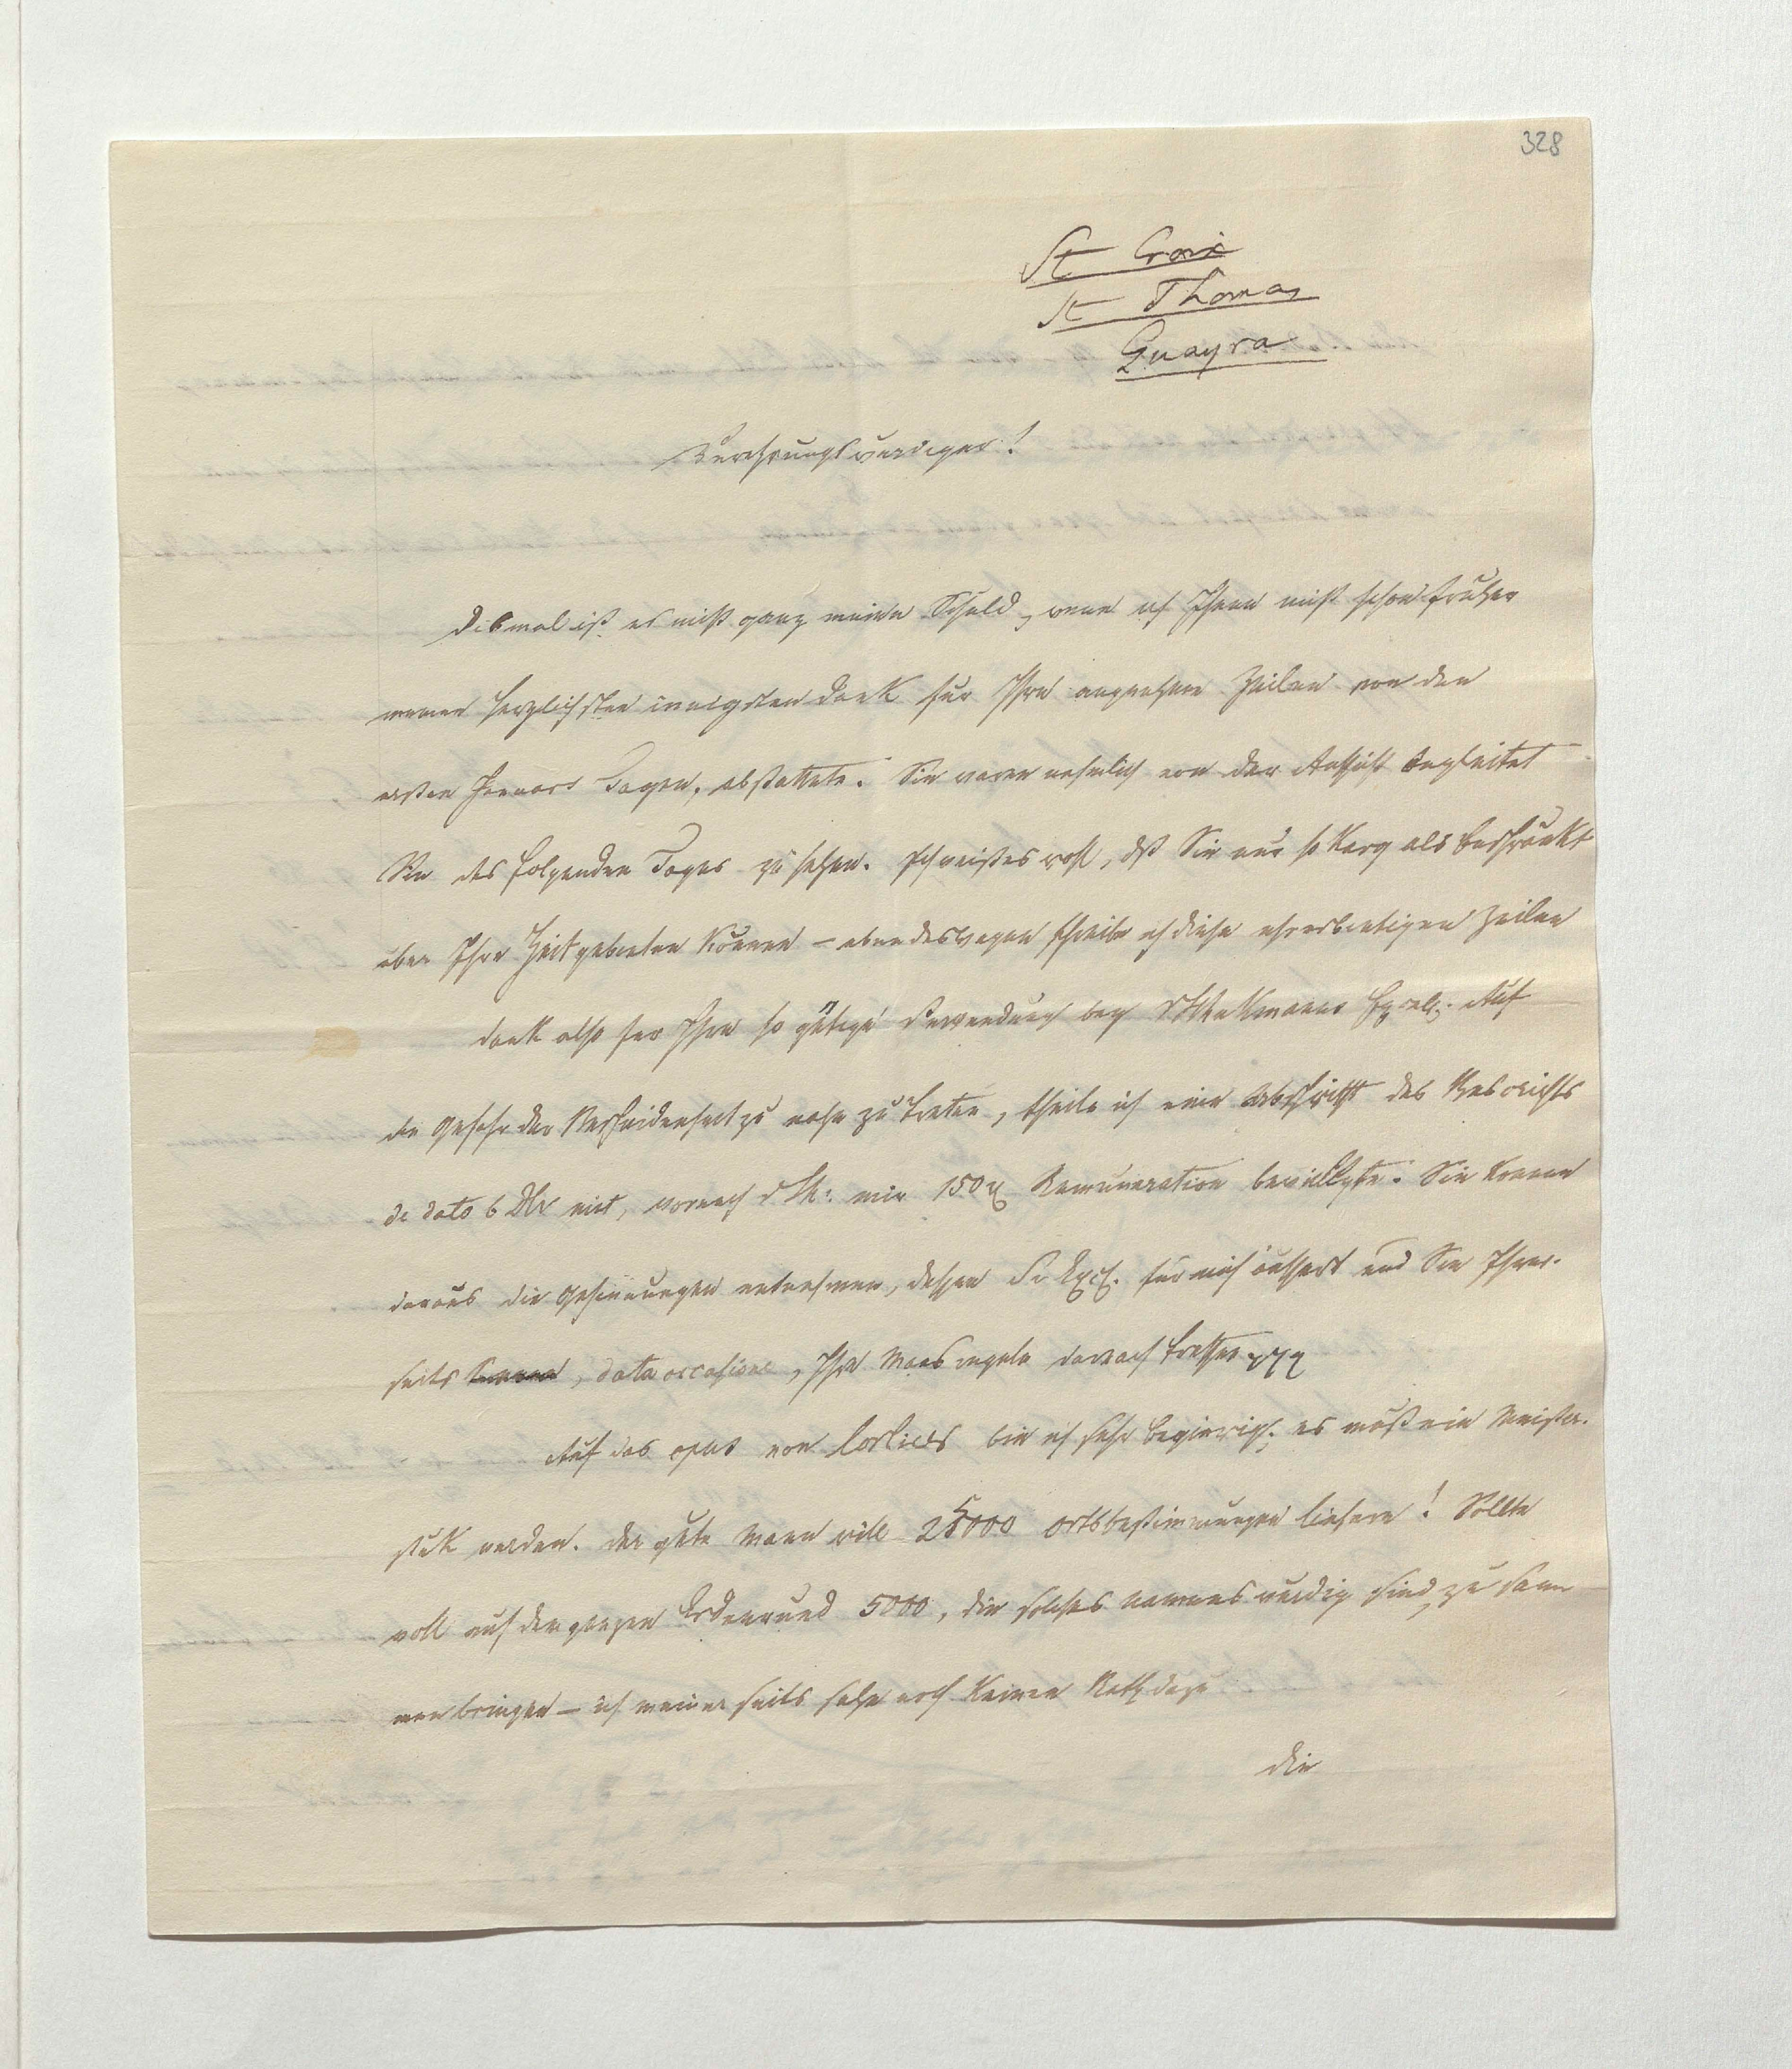 328
St Croix
St Thomas
Guayra
Verehrungswürdiger!
Dismal ist es nicht ganz meine Schuld, wenn ich Ihnen nicht schon fruher
meinen herzlichsten innigsten Dank für Ihre angenehme Zeilen von den
ersten Januars Tagen, abstattete. Sie waren nehmlich von der Aussicht begleitet
Sie des folgenden Tages zu sehen. Ich weiß es wohl, dß Sie nur so karg als beschränkt
über Ihre Zeit gebieten können – eben deswegen schreibe ich diese ehrerbietigen Zeilen
Dank also für Ihre so gütige Verwendung bey Excell. Auf
die Gefahr der Bescheidenheit zu nahe zu treten, theile ich eine Abschrift des Rescripts
de dato 6 mit, wornach mir 150 Remuneration bewilligte. Sie können
daraus die Gesinnungen entnehmen, Se Exc. für mich äussert und Sie Ihrer-
seits können, data occasione, Ihre Maasregeln darnach treffen
Auf das opus von Corlicus bin ich sehr begierig; es muß ein Meister-
stük werden. Der gute Mann will 25000 Ortsbestimmungen liefern! Sollte
wohl auf dem ganzen Erdenrund 5000, die solches Namens würdig sind, zu sam
men bringen – ich meiner seits sehe noch keinen Rath dazu
Die